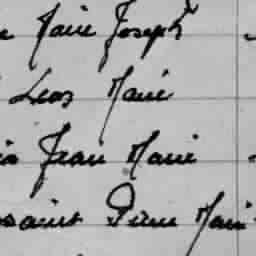 Marie Joseph
Léon Marie
Jean Marie
Toussaint Pierre Marie